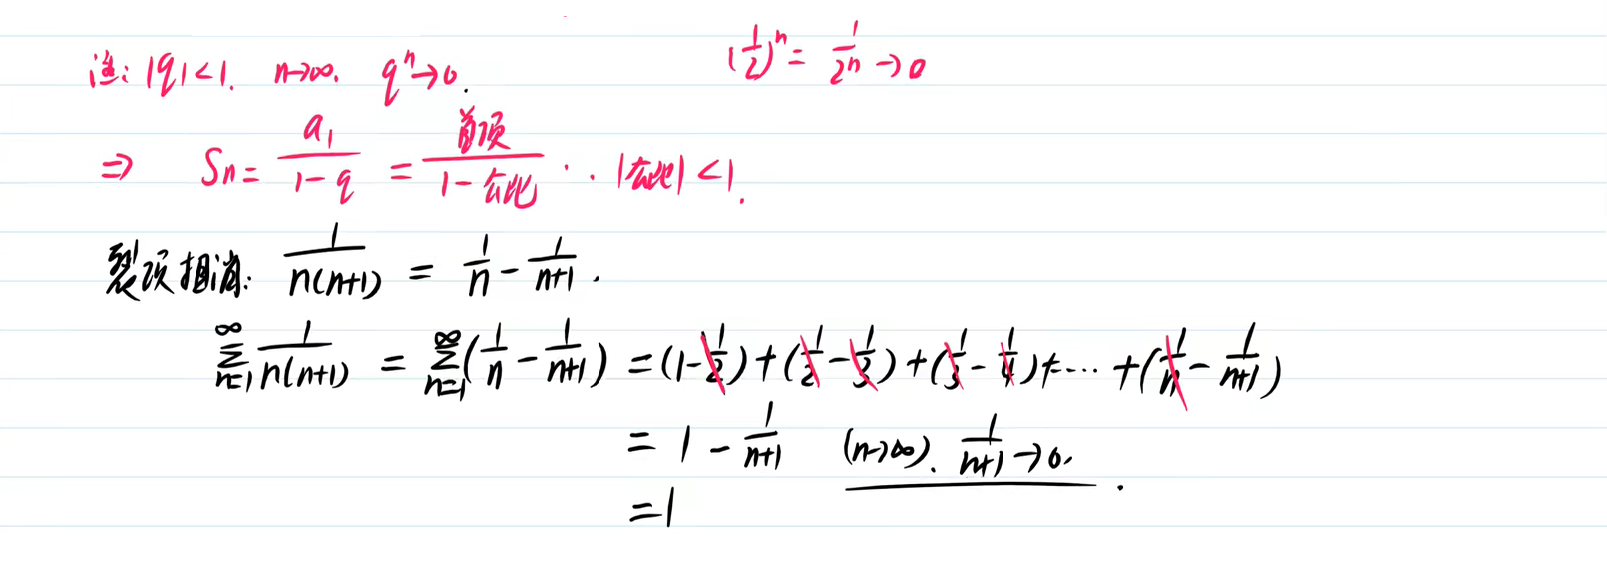 注: |q|<1. n→∞. q^n→0. (1/2)^n = 1/2^n →0
⇒ Sn = a₁/(1-q) = 首项/(1-公比) . . |公比|<1.
裂项相消: 1/(n(n+1)) = 1/n - 1/(n+1) .
∑_{n=1}^{∞} 1/(n(n+1)) = ∑_{n=1}^{∞} (1/n - 1/(n+1)) = (1-1/2)+(1/2-1/3)+(1/3-1/4)+···· +(1/n-1/(n+1))
= 1 - 1/(n+1) (n→∞). 1/(n+1)→0. .
=1